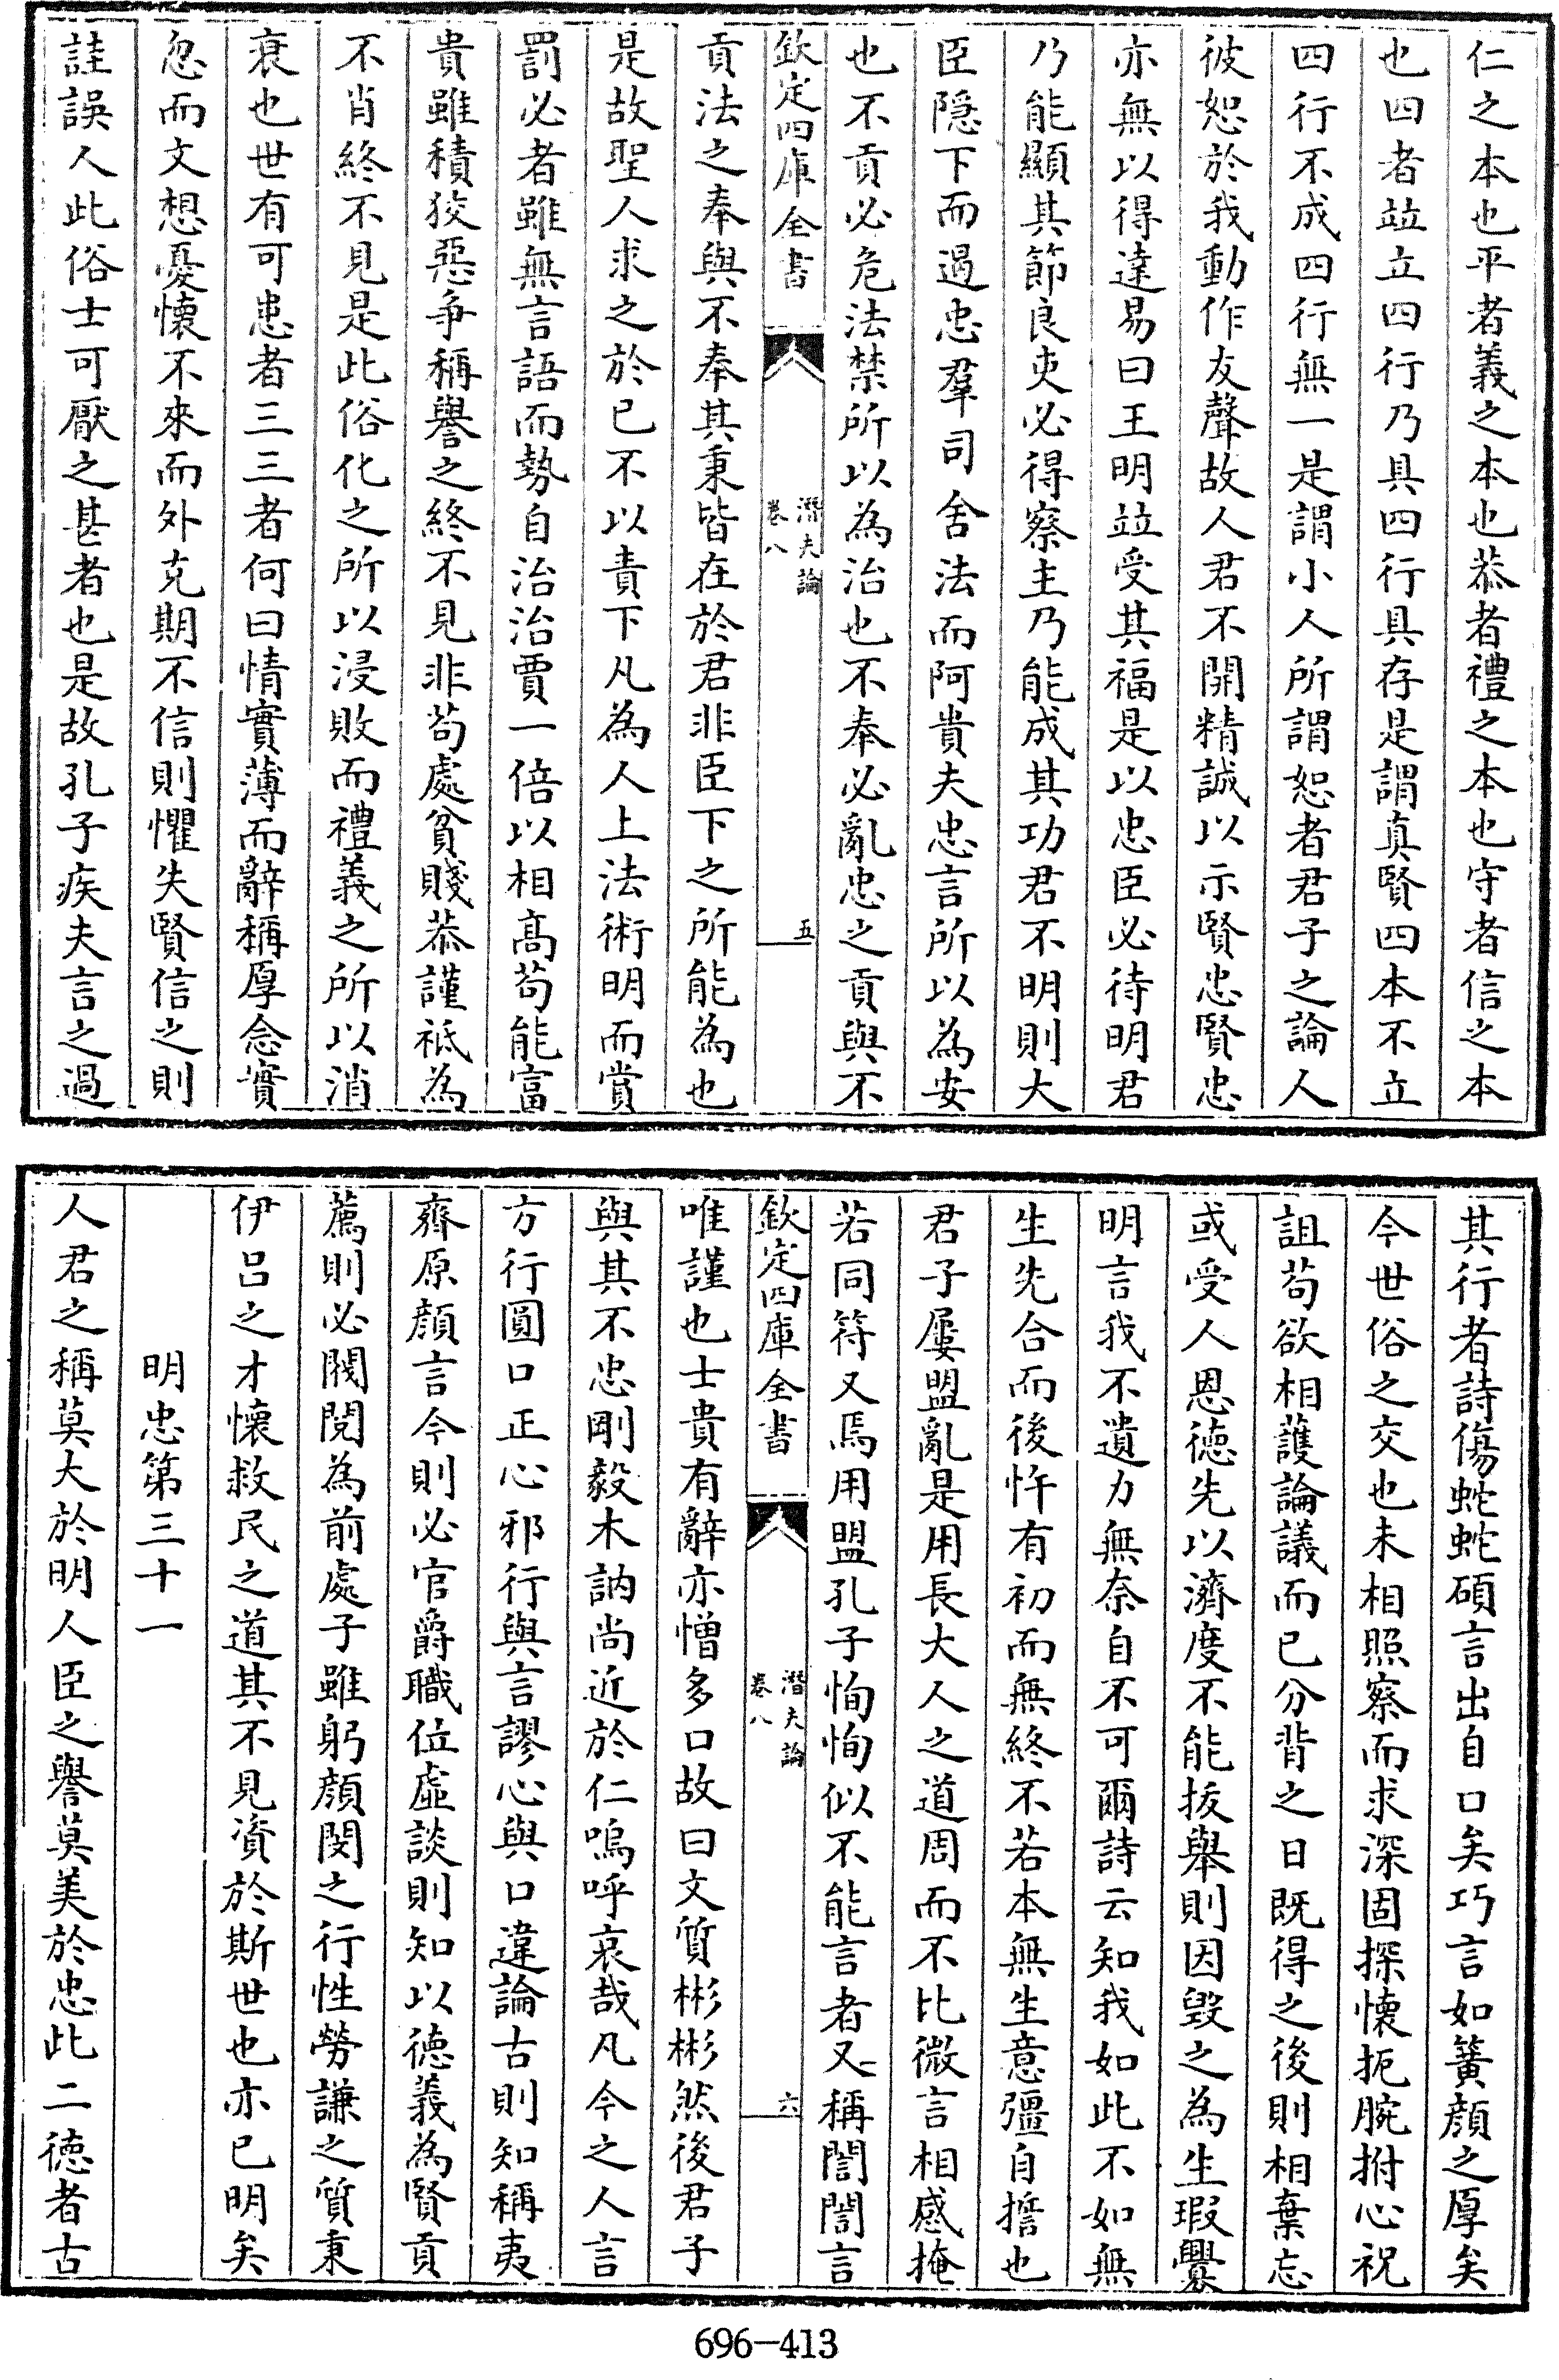 仁之本也平者義之本也恭者禮之本也守者信之本
也四者竝立四行乃具四行具存是謂真賢四本不立
四行不成四行無一是謂小人所謂恕者君子之論人
彼恕於我動作友聲故人君不開精誠以示賢忠賢忠
亦無以得達易曰王明竝受其福是以忠臣必待明君
乃能顯其節良吏必得察主乃能成其功君不明則大
臣隱下而遏忠羣司舍法而阿貴夫忠言所以為安
也不貢必危法禁所以為治也不奉必亂忠之貢與不
欽定四庫全書
潛夫論
卷八
五
貢法之奉與不奉其秉皆在於君非臣下之所能為也
是故聖人求之於已不以責下凡為人上法術明而賞
罰必者雖無言語而勢自治治賈一倍以相髙苟能富
貴雖積狡惡爭稱譽之終不見非苟處貧賤恭謹祗為
不肖終不見是此俗化之所以浸敗而禮義之所以消
衰也世有可患者三三者何曰情實薄而辭稱厚念實
忽而文想憂懷不來而外克期不信則懼失賢信之則
詿誤人此俗士可厭之甚者也是故孔子疾夫言之過
其行者詩傷蛇蛇碩言出自口矣巧言如簧顏之厚矣
今世俗之交也未相照察而求深固探懷扼腕拊心祝
詛苟欲相護論議而已分背之日既得之後則相棄忘
或受人恩徳先以濟度不能拔舉則因毀之為生瑕釁
明言我不遺力無奈自不可爾詩云知我如此不如無
生先合而後忤有初而無終不若本無生意彊自㨾也
君子屢盟亂是用長大人之道周而不比微言相感掩
若同符又焉用盟孔子恂恂似不能言者又稱誾誾言
欽定四庫全書
潛夫論
卷八
六
唯謹也士貴有辭亦憎多口故曰文質彬彬然後君子
與其不忠剛毅木訥尚近於仁嗚呼哀哉凡今之人言
方行圓口正心邪行與言謬心與口違論古則知稱夷
齊原顏言今則必官爵職位虛談則知以徳義為賢貢
薦則必閥閱為前處子雖躬顏閔之行性勞謙之質秉
伊呂之才懷救民之道其不見資於斯世也亦已明矣
明忠第三十一
人君之稱莫大於明人臣之譽莫美於忠此二徳者古
696-413